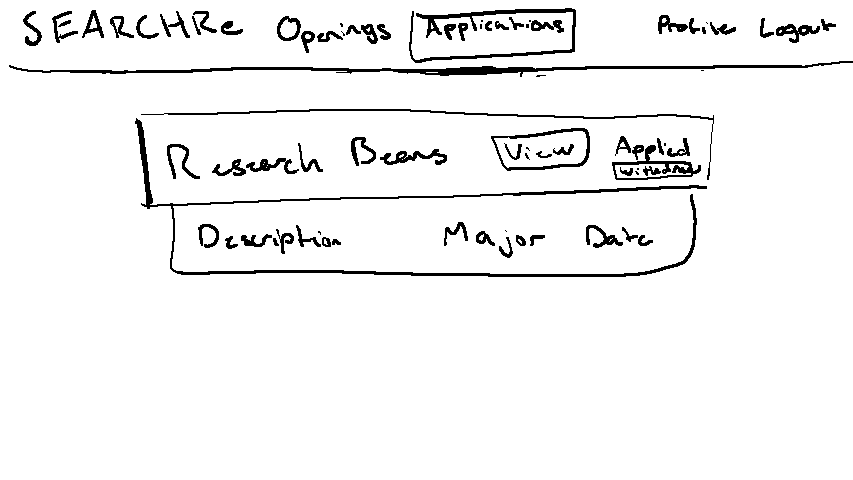 SEARCHRe Openings Applications Profile Logout
Research Beans View Applied
Withdraw
Description Major Date